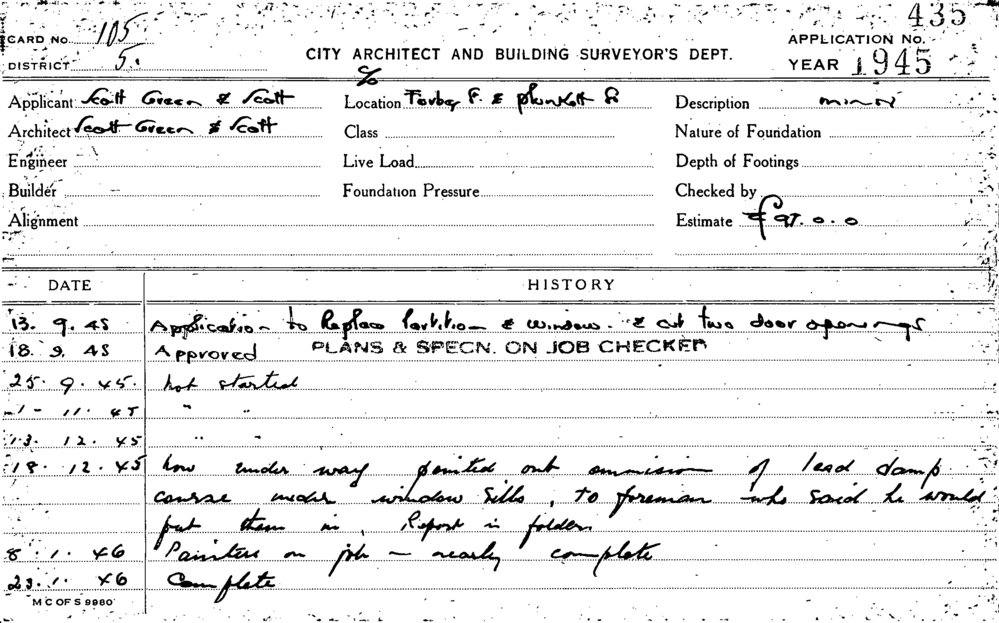 435
CARD No. 105
APPLICATION No.
DISTRICT 5.
CITY ARCHITECT AND BUILDING SURVEYOR'S DEPT.
YEAR 1945
Applicant Scott Green & Scott
Location c/o Forbes S. & Plunkett St
Description minor
Architect Scott Green & Scott
Class
Nature of Foundation
Engineer
Live Load
Depth of Footings
Builder
Foundation Pressure
Checked by
Alignment
Estimate £ 95.0.0
DATE HISTORY
13. 9. 45 Application to Replace Partition & window. & cut two door openings
18. 9. 45 Approved PLANS & SPECN. ON JOB CHECKED
25. 9. 45. not started
11. 45 " "
13. 12. 45 " "
18. 12. 45 now under way pointed out ommision of lead damp
course under window sills, to foreman who said he would
put them in. Report in folder
8. 1. 46 Painters on job – nearly complete
23. 1. 46 Complete
M C OF S 9980